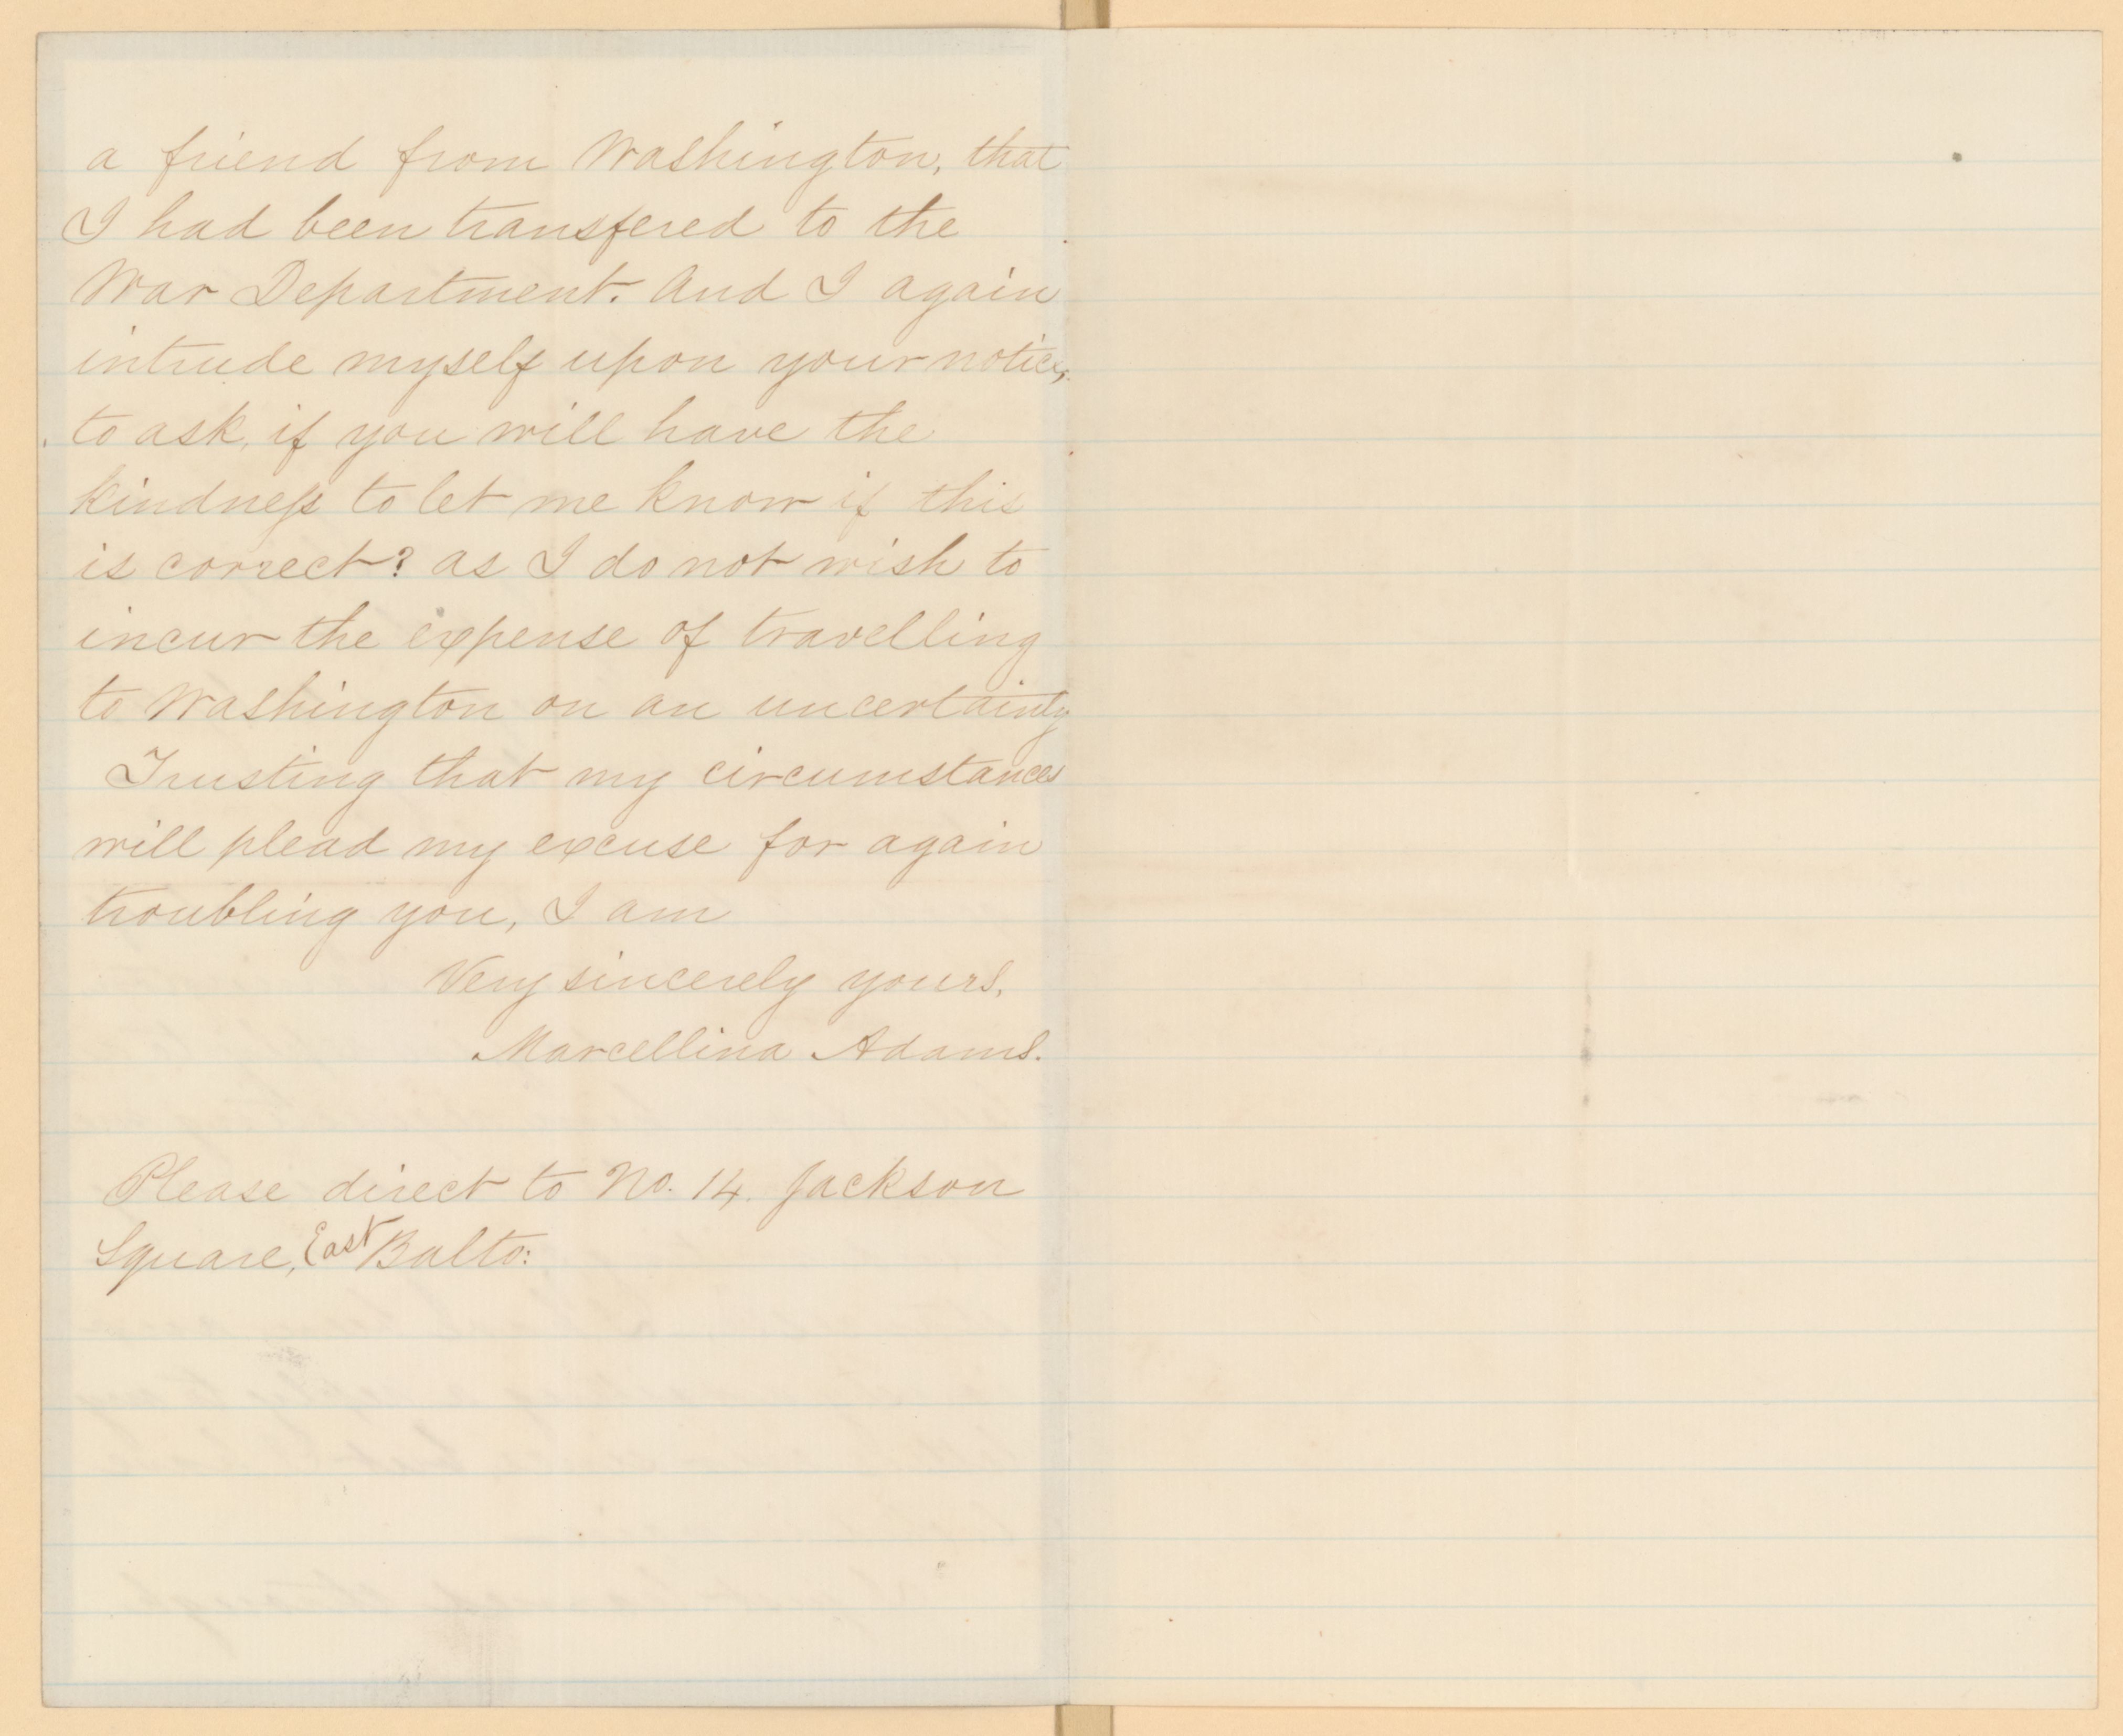 a friend from Washington, that
I had been transfered to the
War Department. And I again
intrude myself upon your notice,
to ask, if you will have the
kindness to let me know if this
is correct? as I do not wish to
incur the expense of travelling
to Washington on an uncertainty
Trusting that my circumstances
will plead my excuse for again
troubling you, I am
Very sincerely yours,
Marcellina Adams.
Please direct to No. 14. Jackson
Square, East Balto: